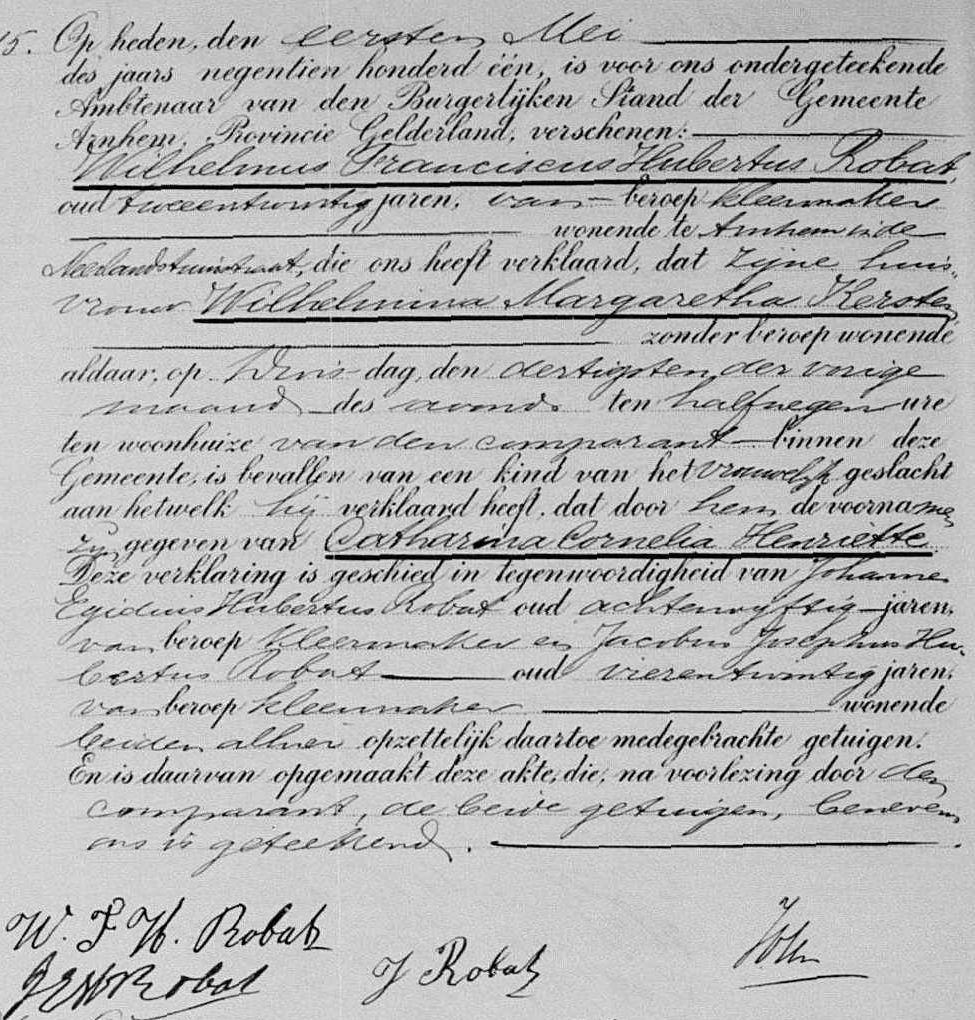 15. Op heden, den eersten Mei
des jaars negentien honderd één, is voor ons ondergeteekende
Ambtenaar van den Burgerlijken Stand der Gemeente
Arnhem, Provincie Gelderland, verschenen:
Wilhelmus Franciscus Hubertus Robat,
oud tweeentwintig jaren, van beroep kleermaker
wonende te Arnhem in de
Neerlandstuinstraat, die ons heeft verklaard, dat zijne huis-
vrouw Wilhelmina Margaretha Kersten
zonder beroep wonende
aldaar, op Dins dag, den dertigsten der vorige
maand des avonds ten halfnegen ure
ten woonhuize van den comparant binnen deze
Gemeente, is bevallen van een kind van het vrouwelijk geslacht
aan hetwelk hij verklaard heeft, dat door hem de voornamen
zijn gegeven van Catharina Cornelia Henriette
Deze verklaring is geschied in tegenwoordigheid van Johannes
Egidius Hubertus Robat oud achtenvyftig jaren,
van beroep kleermaker en Jacobus Josephus Hu-
bertus Robat oud vierentwintig jaren,
van beroep kleermaker wonende
beiden alhier opzettelijk daartoe medegebrachte getuigen.
En is daarvan opgemaakt deze akte, die, na voorlezing door den
comparant, de beide getuigen, benevens
ons is geteekend.
W. F. H. Robat
J E H Robat J Robat